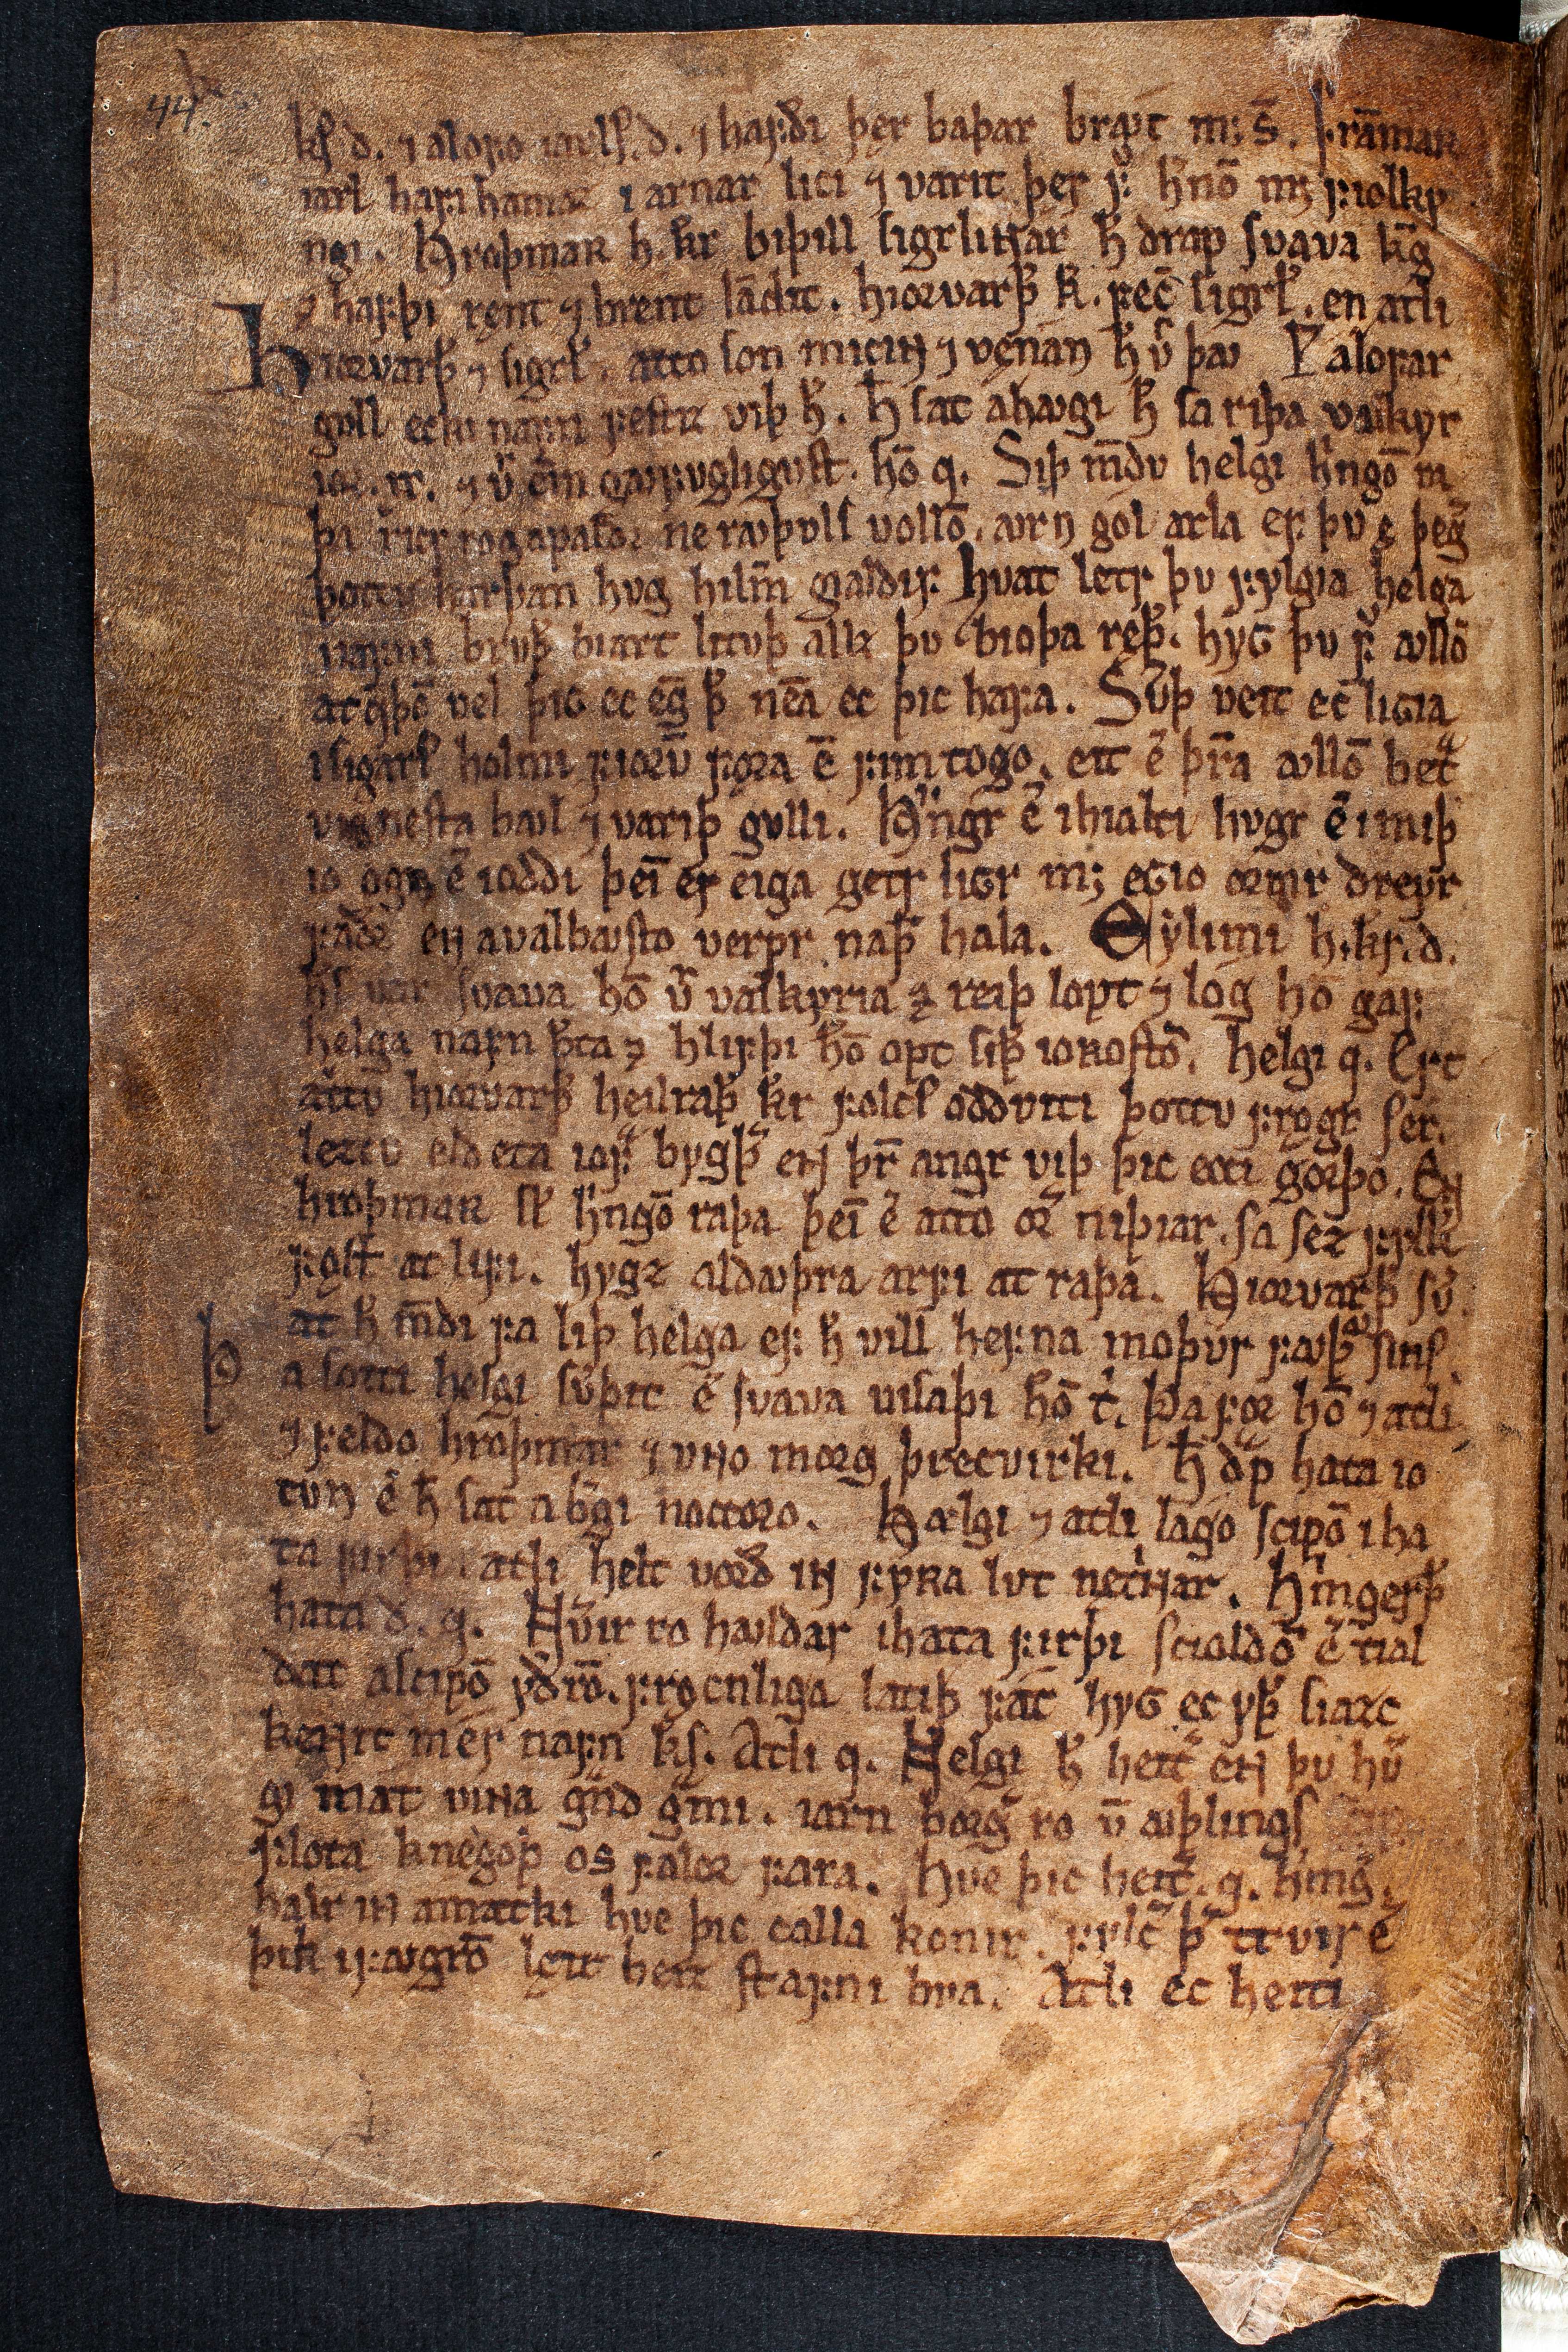 44.
kſ d. ⁊ alofo iarlſ. d. ⁊ hafði þer baþar bravt m; ſ̅. Frāmaʀ
iarl hafi hamaz i arnar lici ⁊ varit þer f͛ h͛nō m; fiolky
ngi. Hroþmaʀ h. kr biþill ſigrliɴar h̅ drap ſvava kg̅
⁊ hafþi ręnt ⁊ brent lādit. hiorvarþ͛ k̅. fec̅ ſigrl͛. en atli
Hiorvarþ͛ ⁊ ſigrl͛. atto ſon micin ⁊ vęnan h̅ v͛ þav F alofar
gvll ecki nafn feſtiz viþ h̅. h̅ ſat ahavgi h̅ ſa riþa valkyr
ior. ıx. ⁊ v͛ ein gavfvgligvſt. hō q. Siþ m̅dv helgi h͛ngō
þa ricr rogapaldr ne ravþvlſ vollō. avrn gol arla ef þv ę þeg͛
þottv harþan hvg hilm̅ gialdir. Hvat letr þv fylgia helga
nafni brvþ͛ biart litvþ allz þv bioþa ręþ͛. hyG þv f͛ avllō
atq̇þō vel þiG ec eg̅ þ̅ nēa ec þic hafa. Sv͛þ veit ec ligia
iſigarſ holmi fiorv̅ fęra ē fimtogo. eit ē þr̅a avllō bet͛
vignesta bavl ⁊ variþ gvlli. H͛ngr ē ihialti hvgr ē i miþ
io ogn ē ioddi þeī er eiga getr liGr m; eGio ormr dreyr
faðr eɴ avalbavſto verpr naþ͛ hala. Eylimi h. kſ. d.
hſ var ſvava hō v͛ valkyria ⁊ reiþ lopt ⁊ log hō gaf
helga nafn þ̅ta ⁊ hlifþi hō opt ſiþ͛ ioʀoſtō. helgi q. Ert
attv hiorvarþ͛ heilraþ͛ kr folcſ oddviti þottv frogr ſer.
leztv eld eta iof͛ bygþ͛ eɴ þr̅ angr viþ þic ecci gorþo. Eɴ
hroþmaʀ ſl̅ h͛ngō raþa þeī ē atto or͛ niþiar. ſa ſez fylk͛
fęſt at lifi. hygz aldavþra arfi at raþa. Hiorvarþ͛ ſv͛.
at h̅ m̅di fa liþ helga ef h̅ vill hefna moþvr favþ͛ ſinſ.
Þa ſotti helgi ſv͛þit ē ſvava viſaþi hō t͛. Þa for hō ⁊ atli
⁊ feldo hroþmar ⁊ vɴo morg þrecvirki. h̅ dp̅ hata io
tvn ē h̅ ſat a b͛gi noccoro. Hælgi ⁊ atli lago ſcipō i ha
ta firþi. atli helt vorð iɴ fyʀa lvt net͛iɴar. H͛mgerþ͛
hata d. q. Hv͛ir ro havldar ihata firþi ſcioldō ē tial
dat aſcipō yðrō. frocnliga latiþ fat͛ hyG ec yþ͛ ſiazc
keɴit mer nafn kſ. Atli q. Helgi h̅ heit͛ eɴ þv hv͛
gi mat viɴa gnd gmi. iarn borg͛ ro v̅ avþlingſ
flota knegoþ os falor fara. Hve þic heit͛. q. hmg͛.
halr iɴ amatki hve þic calla konir. fylc͛ þ͛ ttvir ē
þik ifavgrō lętr beit ſtafni bva. Atli ec heiti